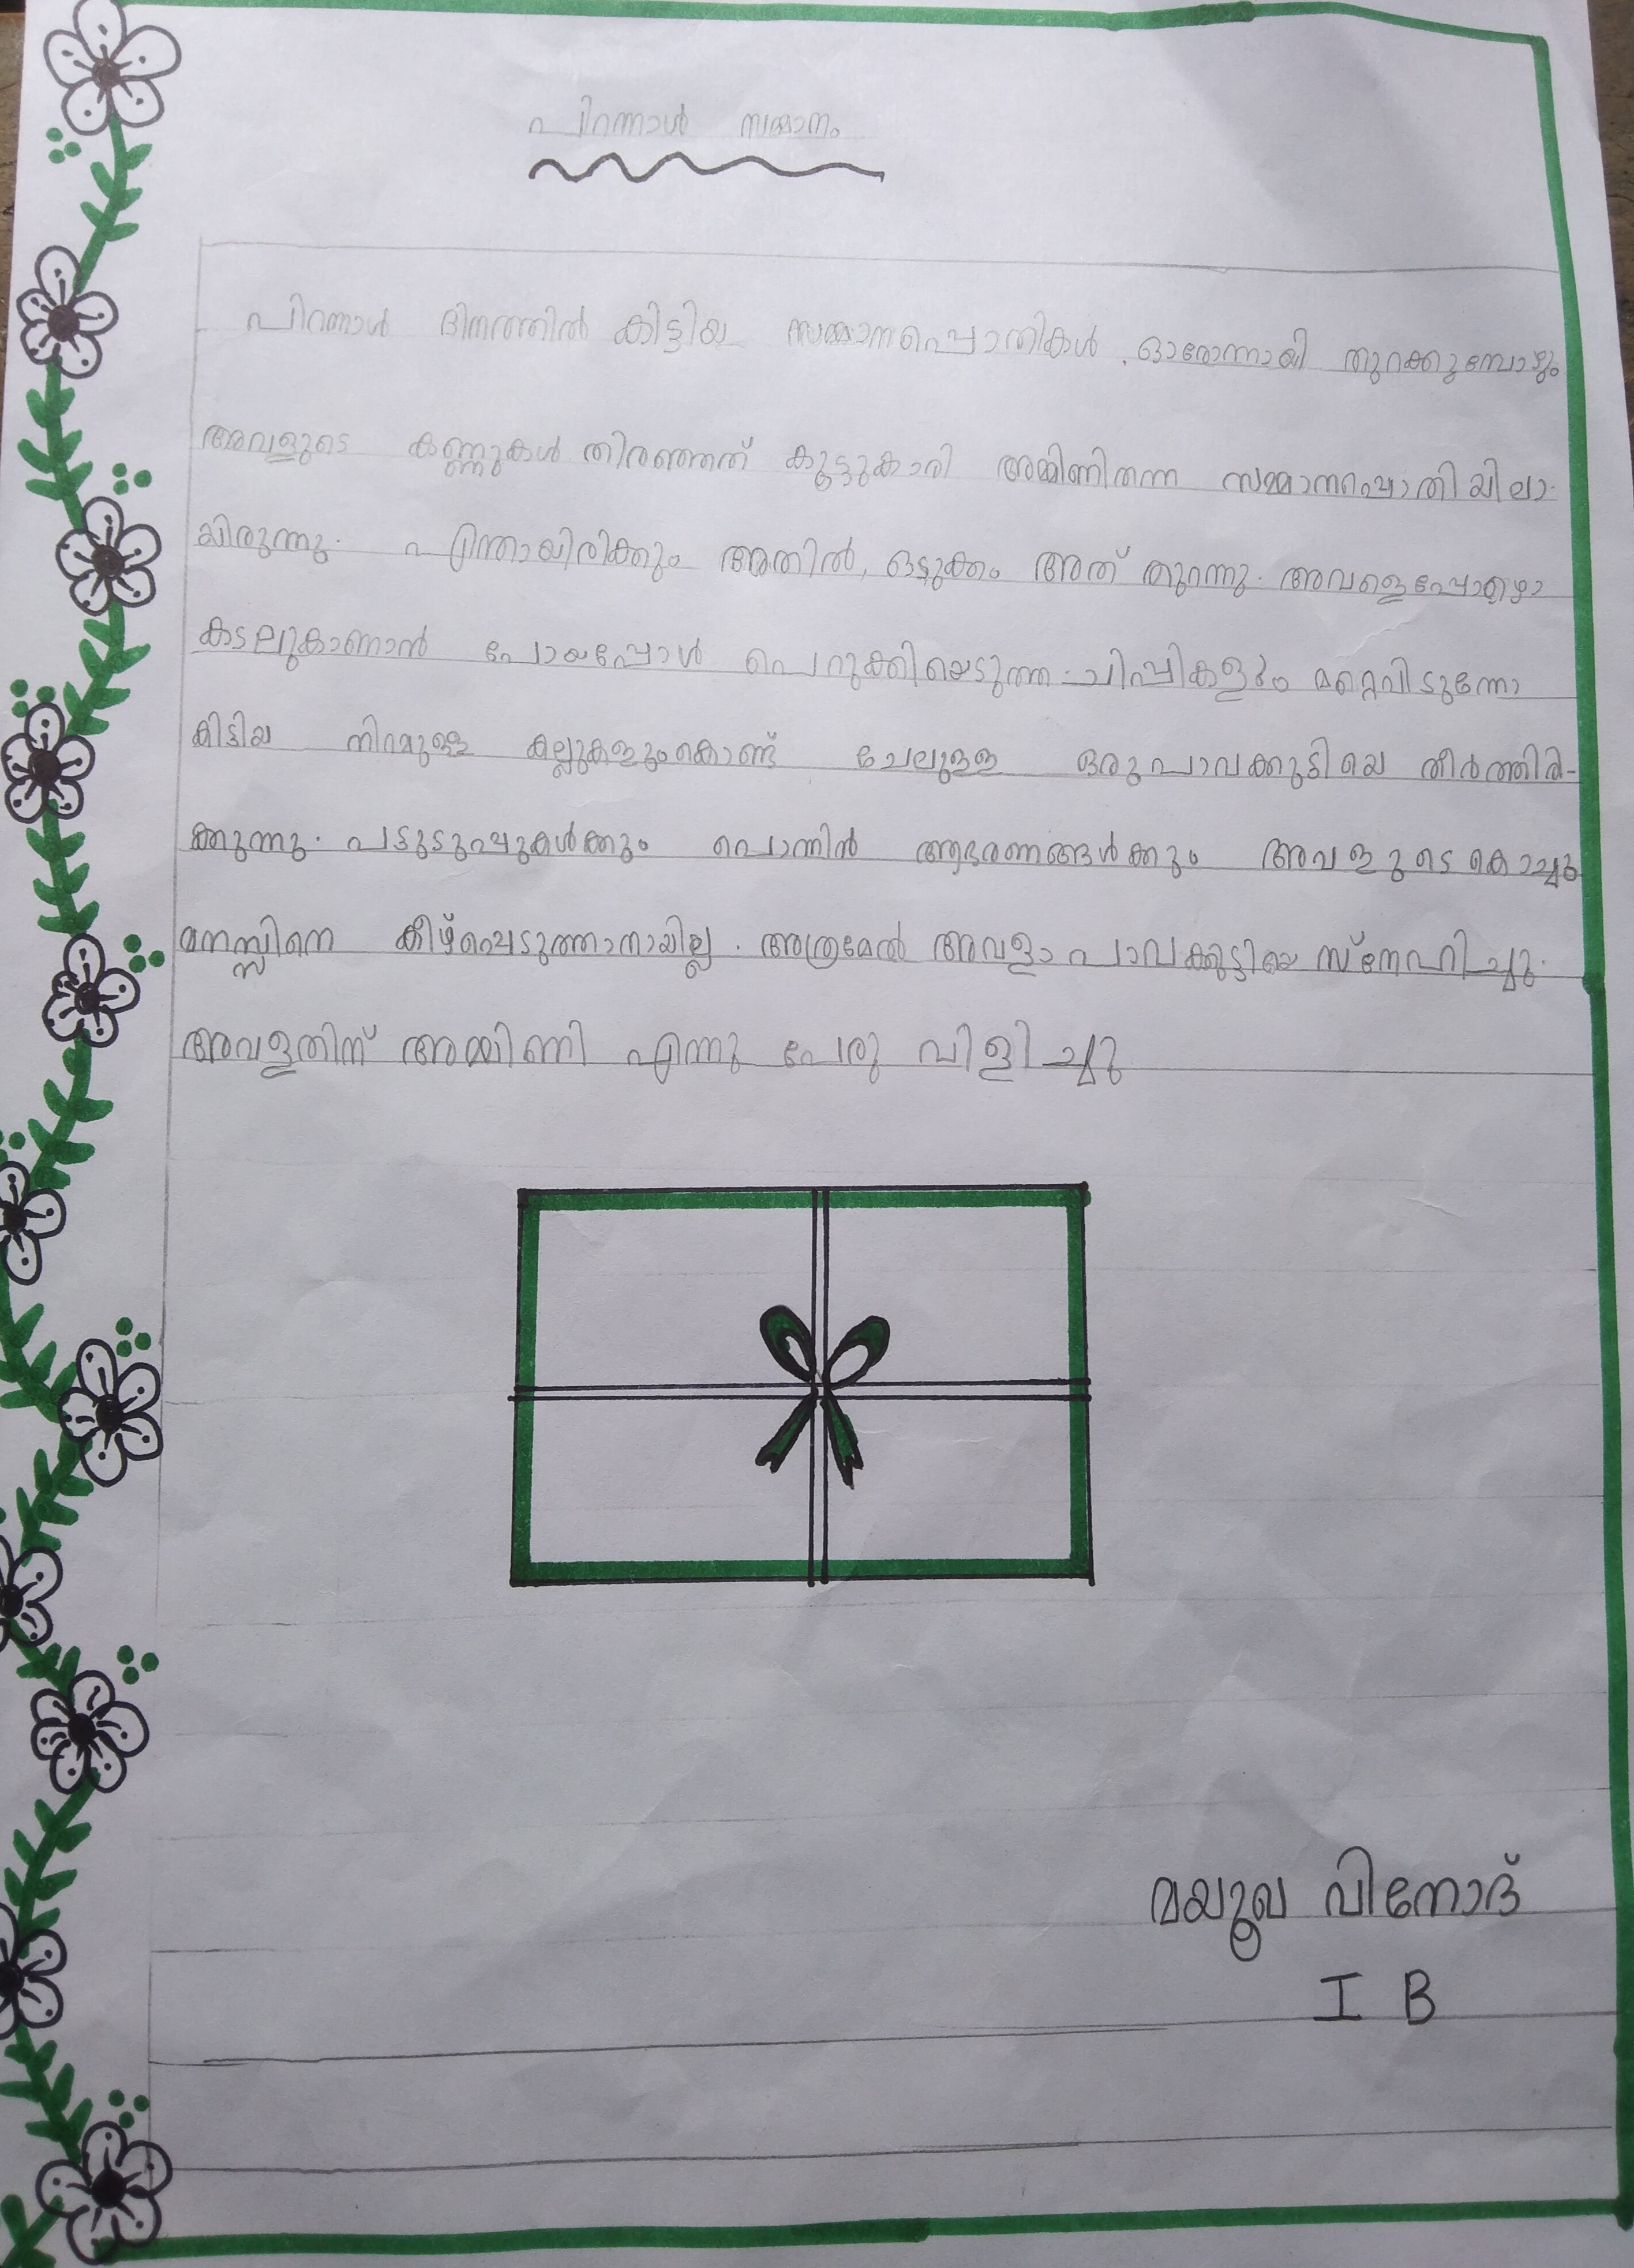 പിറന്നാൾ സമ്മാനം
പിറന്നാൾ ദിനത്തിൽ കിട്ടിയ സമ്മാനപ്പൊതികൾ ഓരോന്നായി തുറക്കുമ്പോഴും
അവളുടെ കണ്ണുകൾ തിരഞ്ഞത് കൂട്ടുകാരി അമ്മിണിതന്ന സമ്മാനപ്പൊതിയിലാ-
യിരുന്നു. എന്തായിരിക്കും അതിൽ, ഒടുക്കം അത് തുറന്നു. അവളെപ്പോഴൊ
കടലുകാണാൻ പോയപ്പോൾ പെറുക്കിയെടുത്ത ചിപ്പികളും മറ്റെവിടുന്നോ
കിട്ടിയ നിറമുള്ള കല്ലുകളുംകൊണ്ട് ചേലുള്ള ഒരു പാവക്കുട്ടിയെ തീർത്തിരി-
ക്കുന്നു. പട്ടുടുപ്പുകൾക്കും പൊന്നിൻ ആഭരണങ്ങൾക്കും അവളുടെ കൊച്ചു
മനസ്സിനെ കീഴ്പ്പെടുത്താനായില്ല. അത്രമേൽ അവളാ പാവക്കുട്ടിയെ സ്നേഹിച്ചു.
അവളതിന് അമ്മിണി എന്നു പേരു വിളിച്ചു
മയൂഖ വിനോദ്
I B